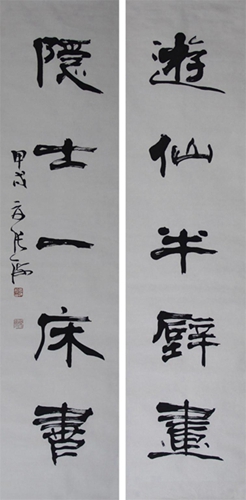 遊仙半壁畫
隱士一床書
甲戌